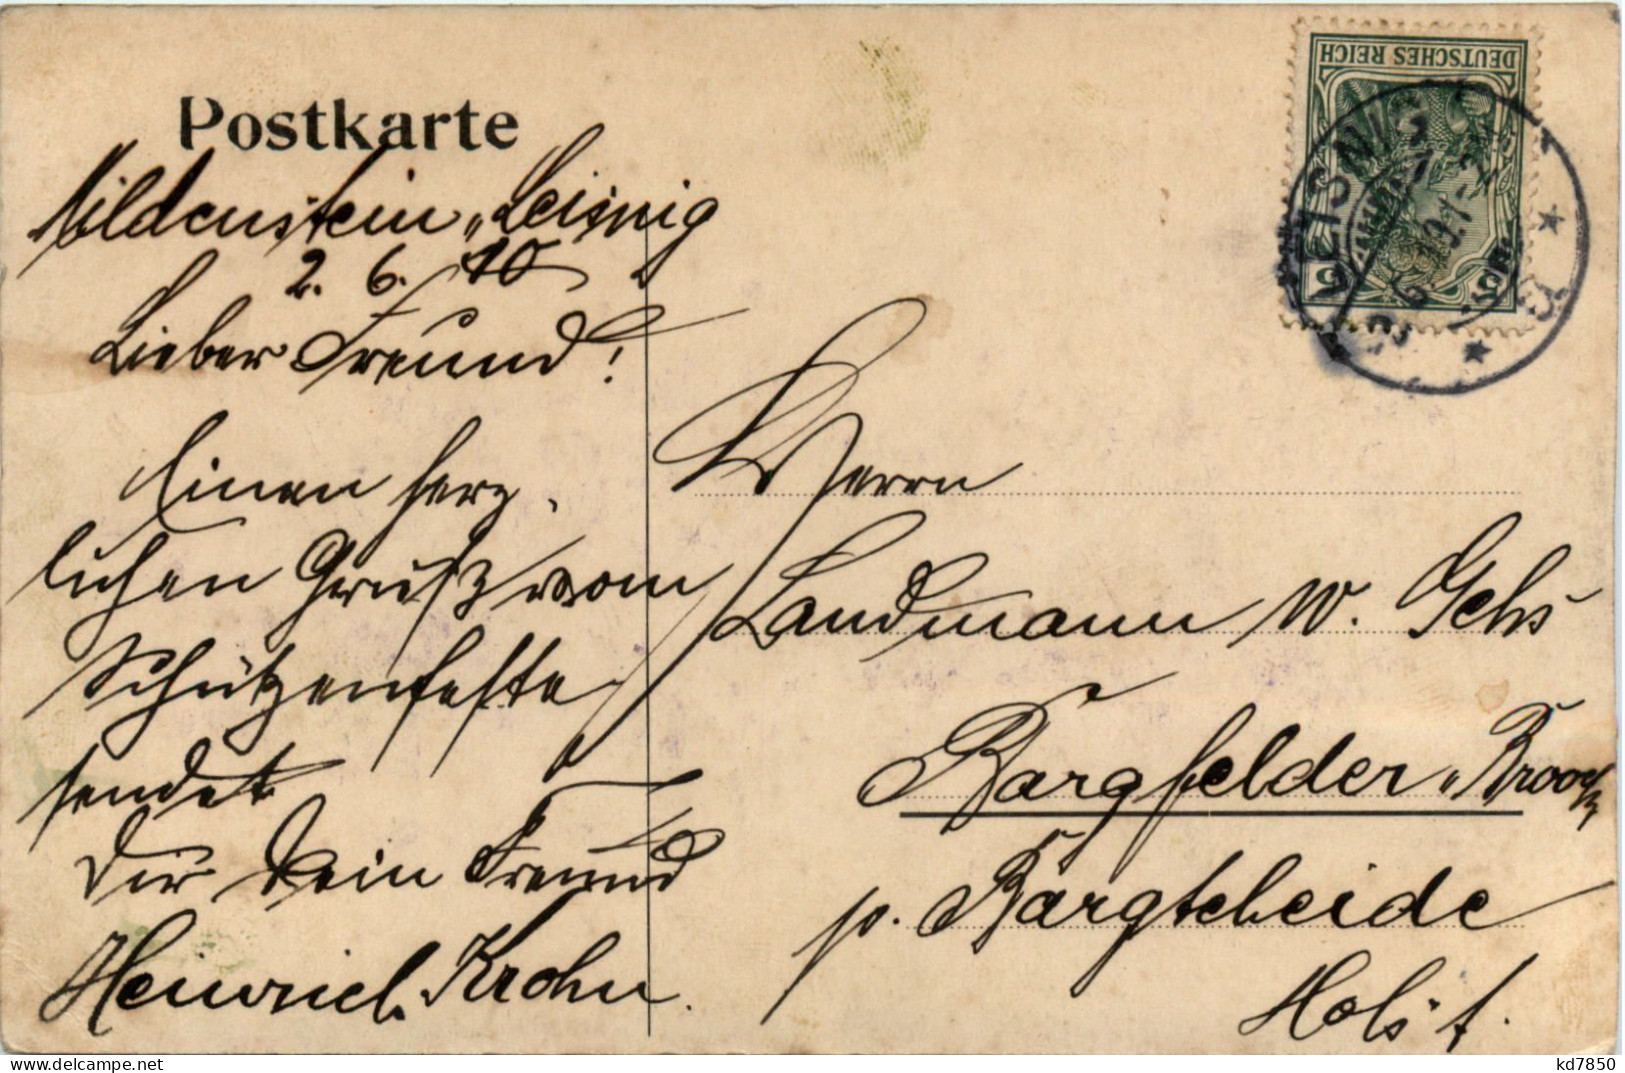 Postkarte
Mildenstein „Leisnig
2. 6. 10
Lieber Freund!
Einen herz-
lichen Gruß vom
Schützenfeste
sendet
Dir Dein Freund
Heinrich Krohn.
DEUTSCHES REICH
5 5
LEISNIG
Herrn
Landmann W. Gehs
Bargfelder „Brook
p. Bargteheide
Holst.
kd7850